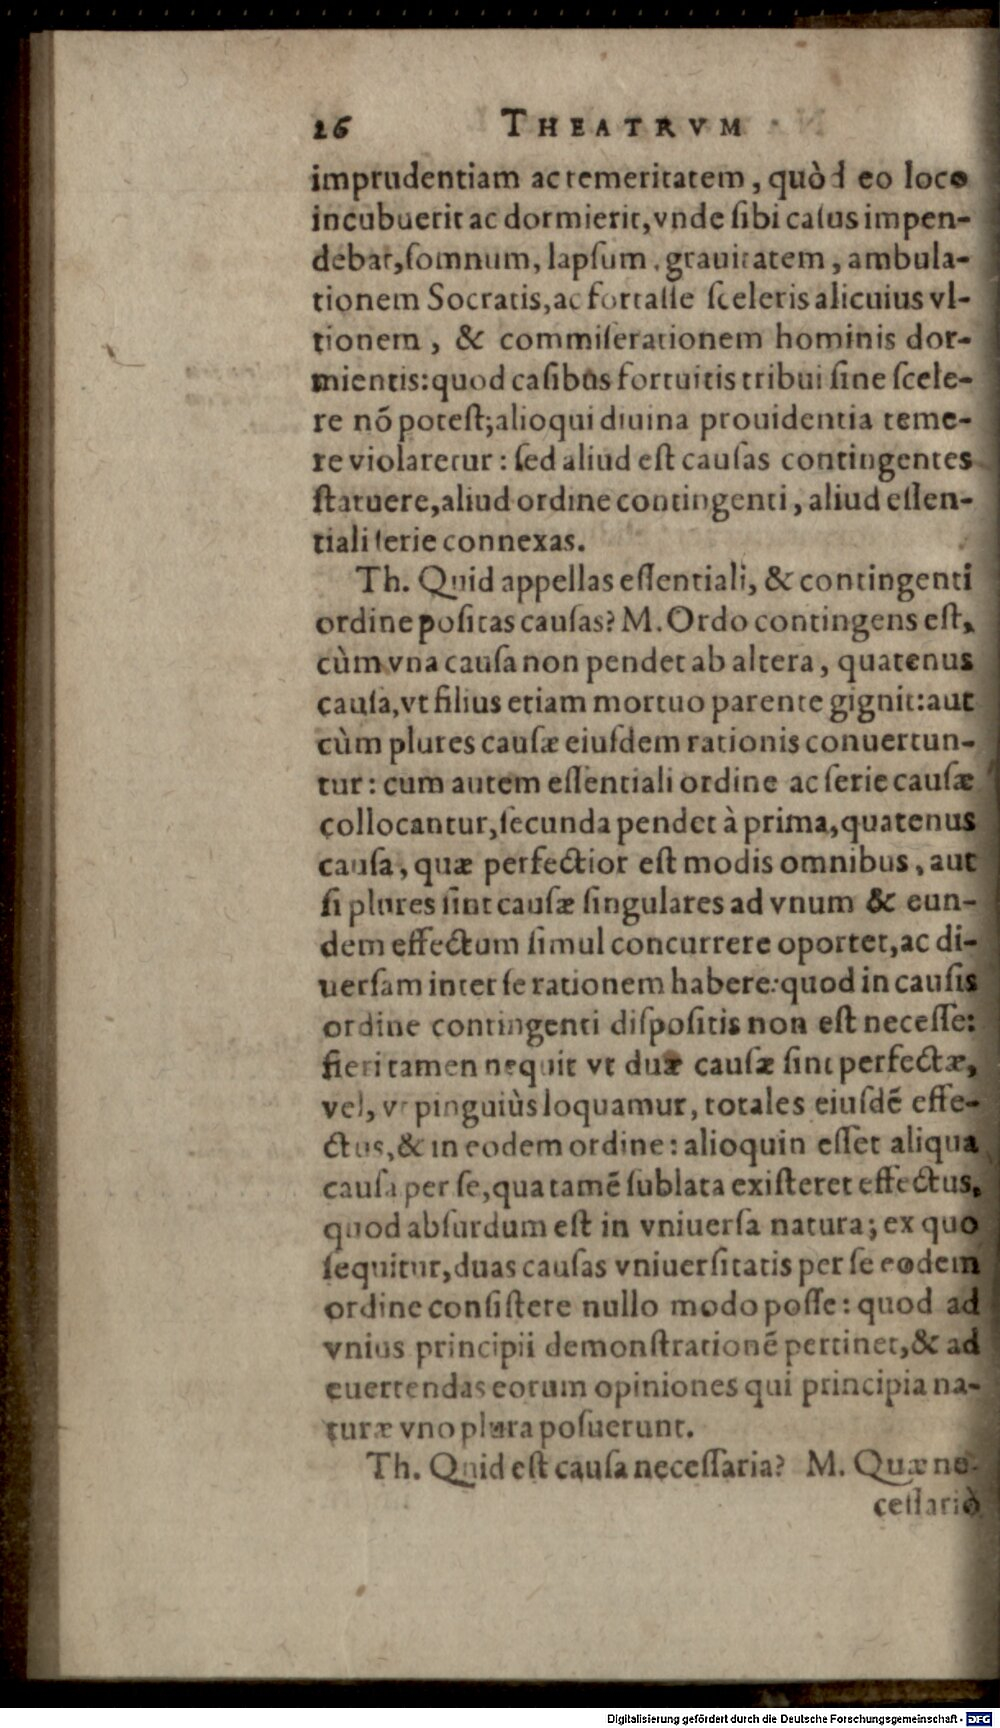 26 THEATRVM
imprudentiam ac temeritatem, quòd eo loco
incubuerit ac dormierit, vnde sibi casus impen-
debat, somnum, lapsum, grauitatem, ambula-
tionem Socratis, ac fortasse sceleris alicuius vl-
tionem, & commiserationem hominis dor-
mientis: quod casibus fortuitis tribui sine scele-
re nõ potest; alioqui diuina prouidentia teme-
re violaretur: sed aliud est causas contingentes
statuere, aliud ordine contingenti, aliud essen-
tiali serie connexas.
Th. Quid appellas essentiali, & contingenti
ordine positas causas? M. Ordo contingens est,
cùm vna causa non pendet ab altera, quatenus
causa, vt filius etiam mortuo parente gignit: aut
cùm plures causæ eiusdem rationis conuertun-
tur: cum autem essentiali ordine ac serie causæ
collocantur, secunda pendet à prima, quatenus
causa, quæ perfectior est modis omnibus, aut
si plures sint causæ singulares ad vnum & eun-
dem effectum simul concurrere oportet, ac di-
uersam inter se rationem habere: quod in causis
ordine contingenti dispositis non est necesse:
fieri tamen nequit vt duæ causæ sint perfectæ,
vel, vt pinguiùs loquamur, totales eiusdẽ effe-
ctus, & in eodem ordine: alioquin esset aliqua
causa per se, qua tamẽ sublata existeret effectus,
quod absurdum est in vniuersa natura; ex quo
sequitur, duas causas vniuersitatis per se eodem
ordine consistere nullo modo posse: quod ad
vnius principii demonstrationẽ pertinet, & ad
euertendas eorum opiniones qui principia na-
turæ vno plura posuerunt.
Th. Quid est causa necessaria? M. Quæ ne-
cessariò
Digitalisierung gefördert durch die Deutsche Forschungsgemeinschaft - DFG